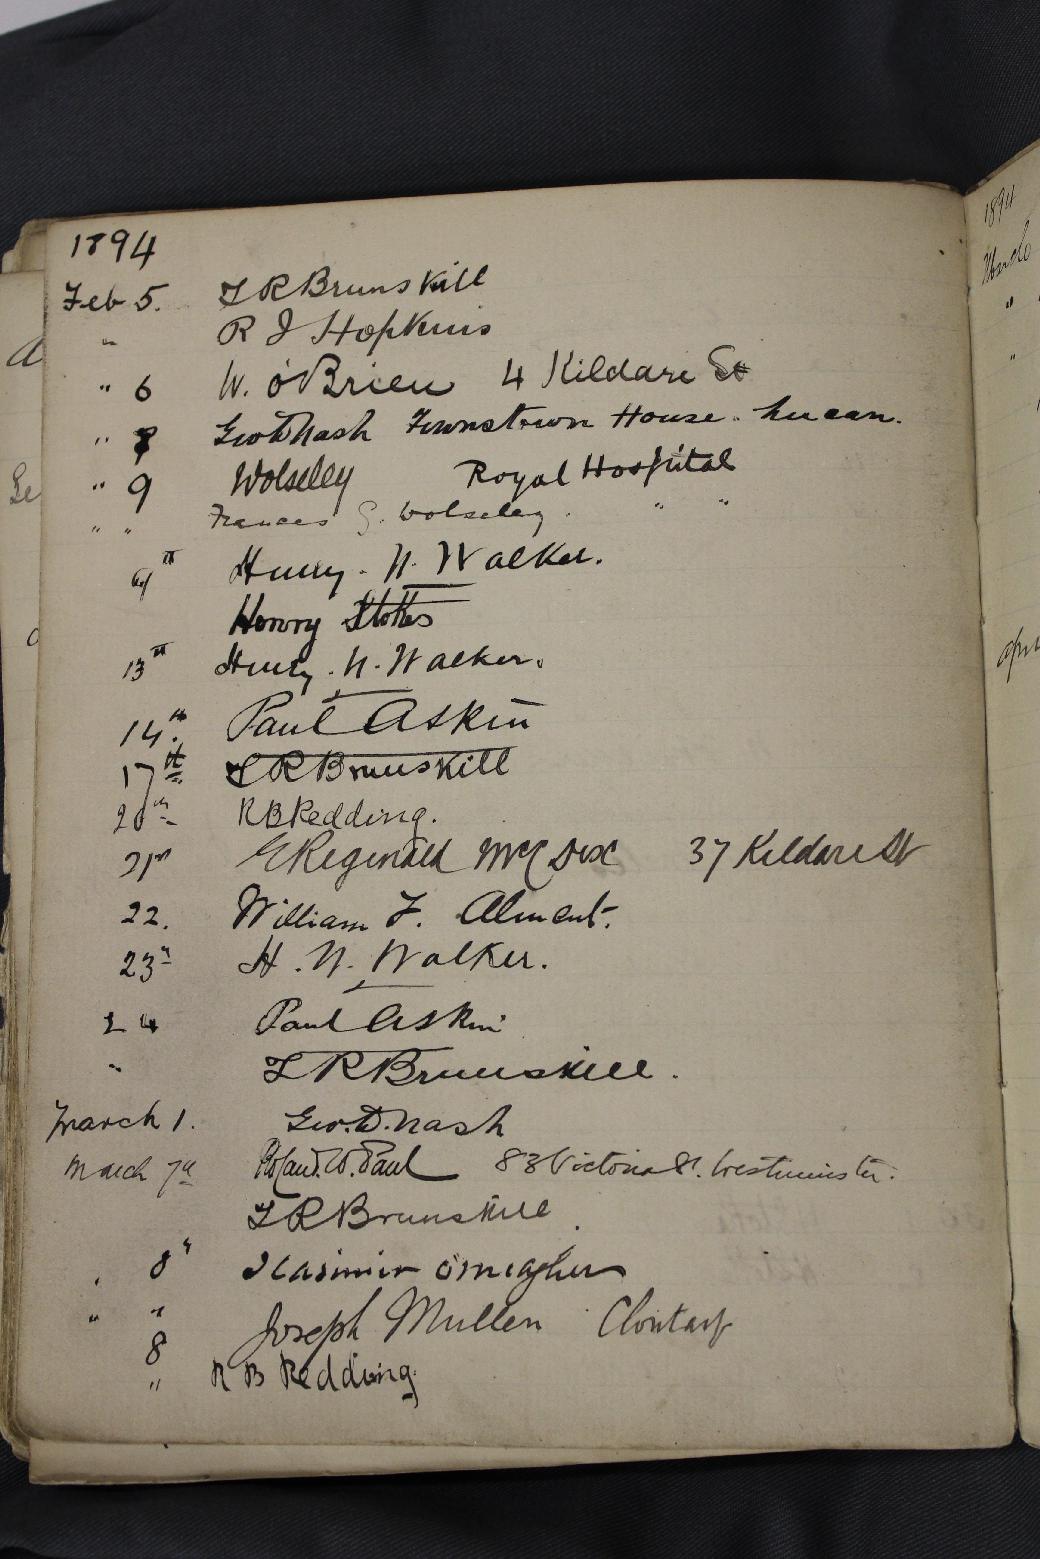 1894
Feb 5. T R Brunskill
" R J Hopkins
" 6 W. O'Brien 4 Kildare St
" 7 Geo D Nash Finnstown House. Lucan.
" 9 Wolseley Royal Hospital
" " Frances G. Wolseley. " "
9th Henry. N. Walker.
Henry Stokes
13th Henry. N. Walker.
14th. Paul Askin
17th T R Brunskill
20th R B Redding.
21st E Reginald McC Dix 37 Kildare St
22. William F. Alment.
23rd H. N. Walker.
24 Paul Askin
" T R Brunskill.
March 1. Geo. D. Nash
March 7th Roland. W. Paul 83 Victoria St. Westminster.
T R Brunskill.
" 8th Casimir O'Meagher
" " Joseph Mullen Clontarf
8
" R B Redding
1894
March
"
"
April